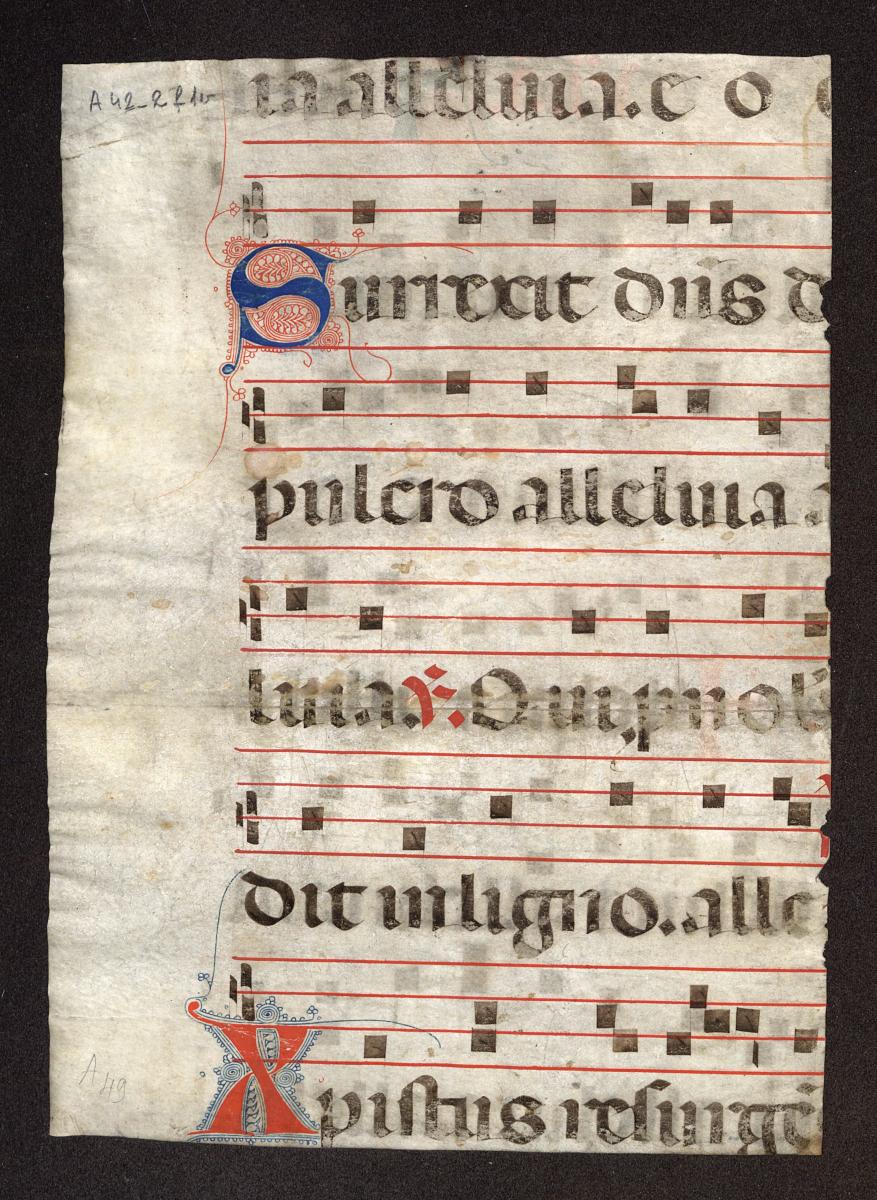 ia alleluia. e o
Surrexit dn̄s d
pulcro alleluia
luia. Qui p no
dit in ligno. alle
Xpistus resurgē
A 49